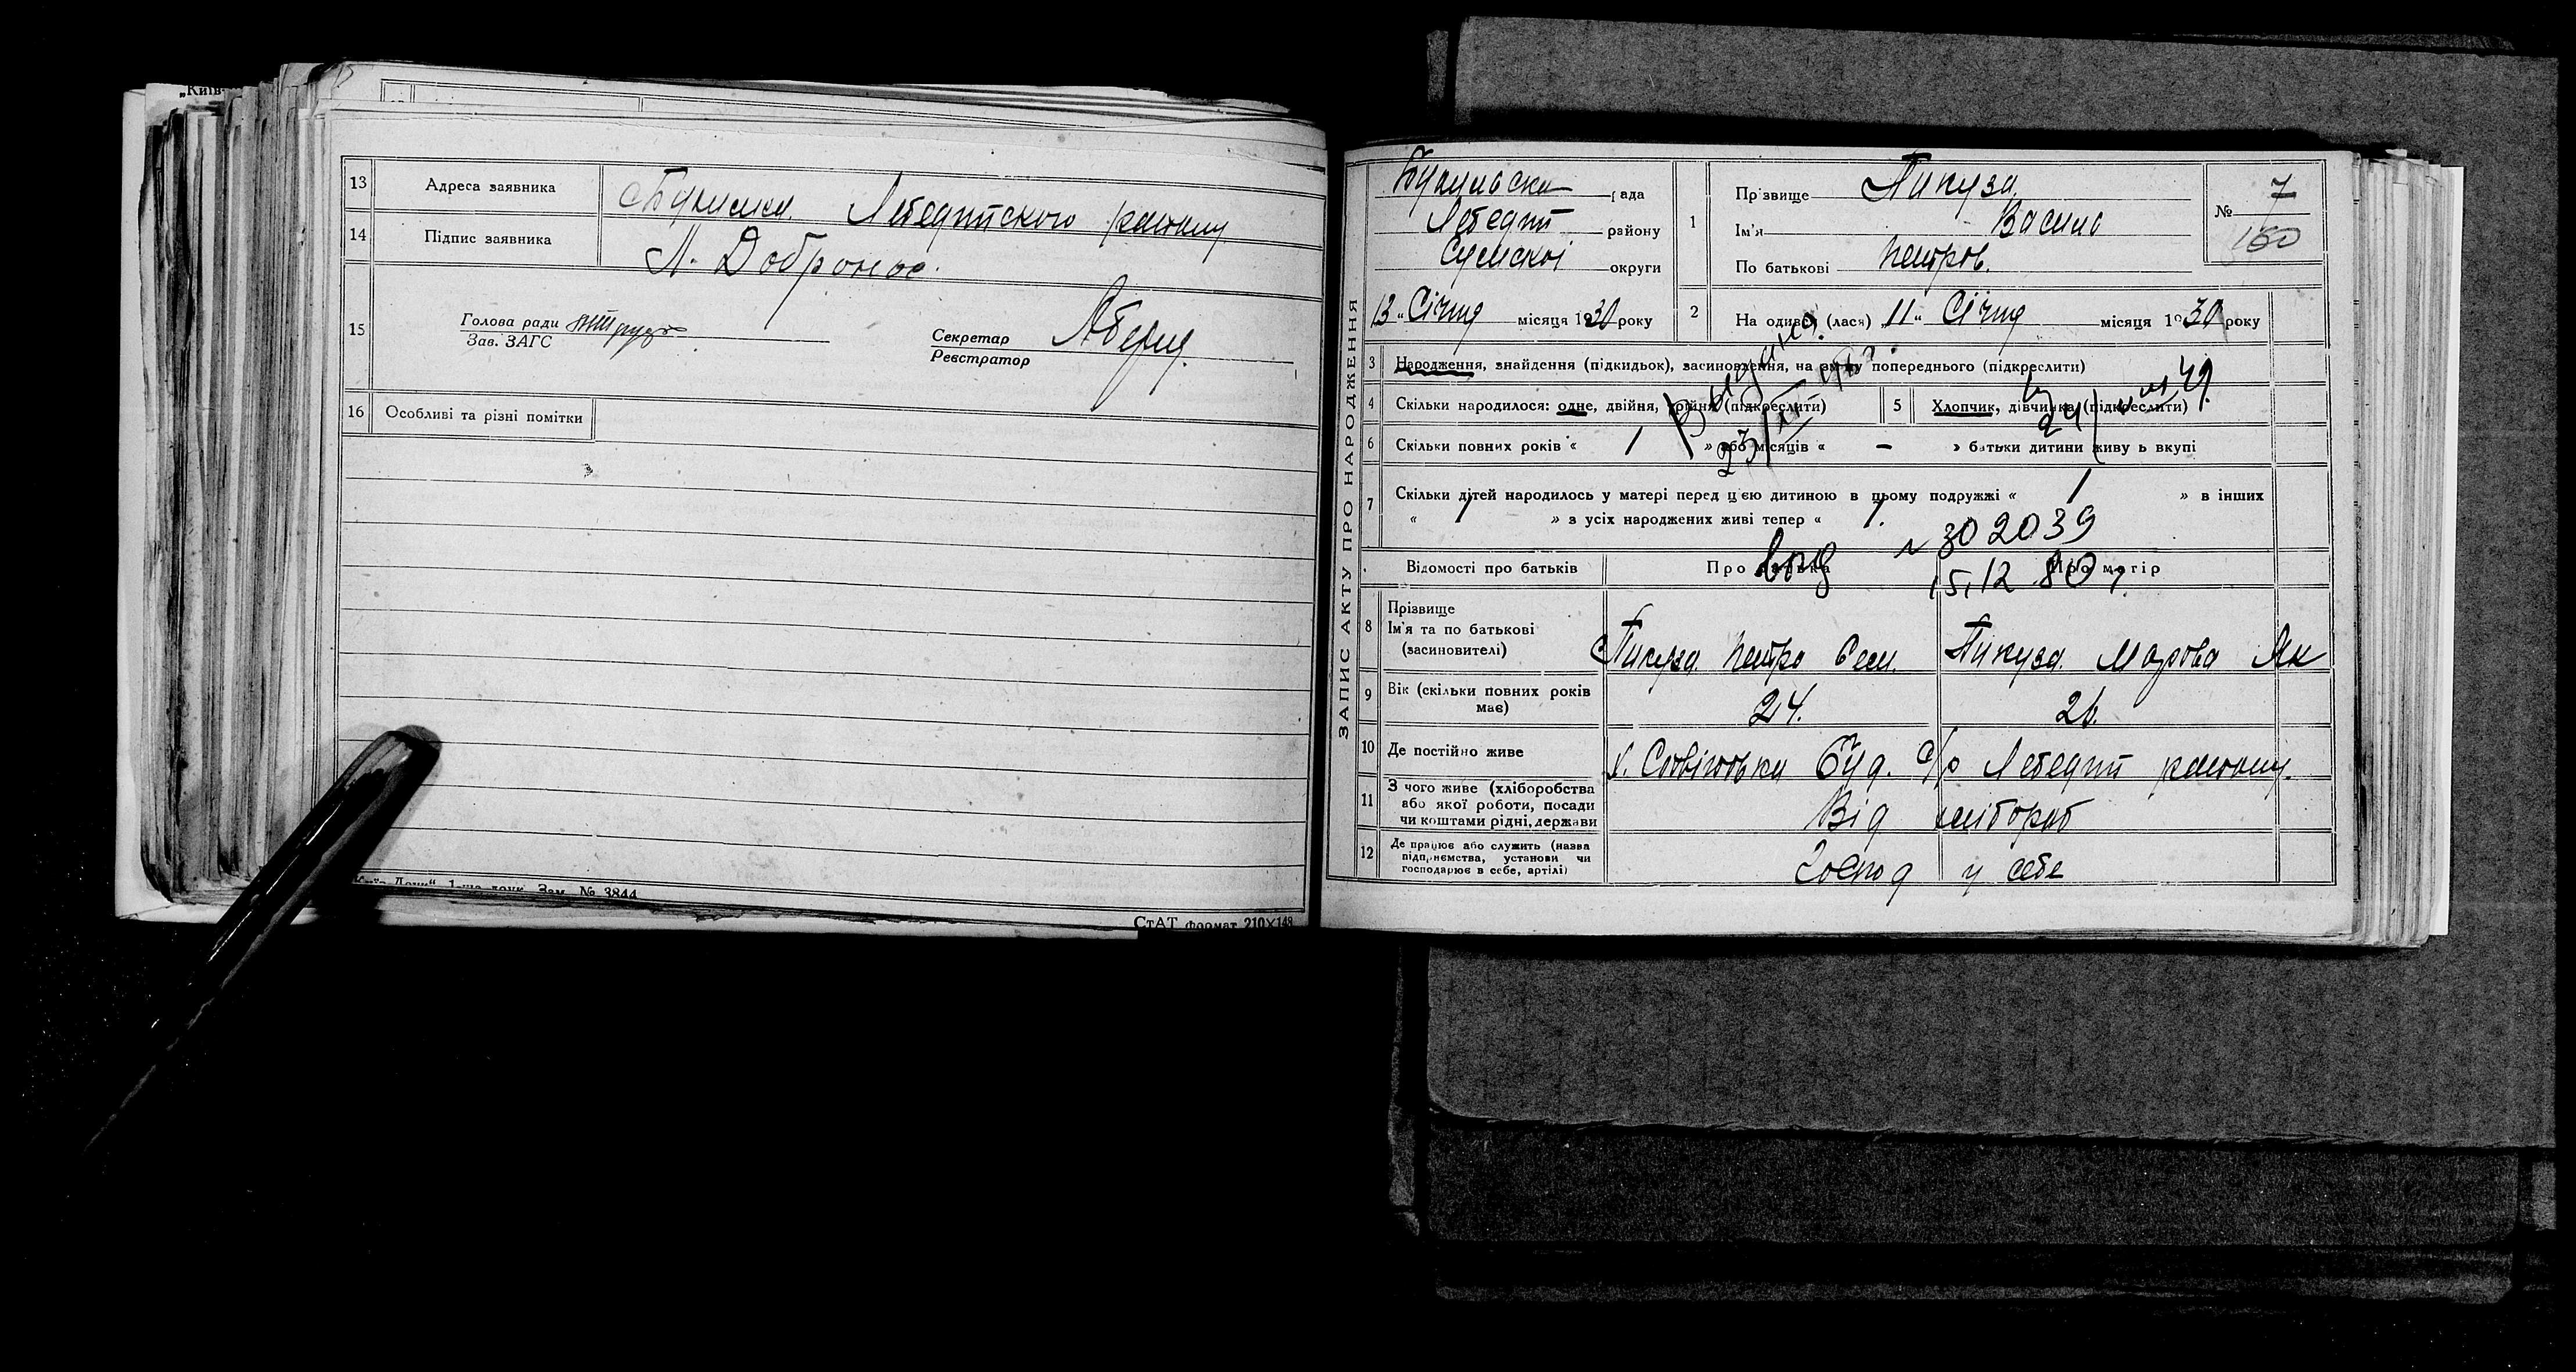 „Київ-
13 Адреса заявника Лебединского району
14 Підпис заявника Л. Доброніс.
15 Голова ради
Зав. ЗАГС
Секретар
Реєстратор
16 Особливі та різні помітки
Зам. № 3844
СтАТ формат 210×148
ЗАПИС АКТУ ПРО НАРОДЖЕННЯ
рада
Лебедин району
Сумскої округи
13" Січня місяця 1930 року
1 Прізвище Пикуза
Ім'я Васило
По батькові Петров.
№ 7
160
2 На одивсь (лася) „11" Січня місяця 1930 року
3 Народження, знайдення (підкидьок), засиновлення, на зміну попереднього (підкреслити)
4 Скільки народилося: одне, двійня, трійня (підкреслити)
5 Хлопчик, дівчинка (підкреслити)
6 Скільки повних років « 1 » або місяців « — » батьки дитини живуть вкупі
7 Скільки дітей народилось у матері перед цією дитиною в цьому подружжі « 1 » в інших
« » з усіх народжених живі тепер « 1.
№ 302039
15.12 80 г.
Відомості про батьків Про батька Про матір
8 Прізвище
Ім'я та по батькові
(засиновителі)
Пикуза Петро Сем. Пикуза Марфа Як
9 Вік (скільки повних років має) 24. 26.
10 Де постійно живе х. Буд. с/р Лебедин району.
11 З чого живе (хліборобства
або якої роботи, посади
чи коштами рідні, держави
Від хлібороб
12 Де працює або служить (назва
підприємства, установи чи
господарює в себе, артілі)
Господ у себе